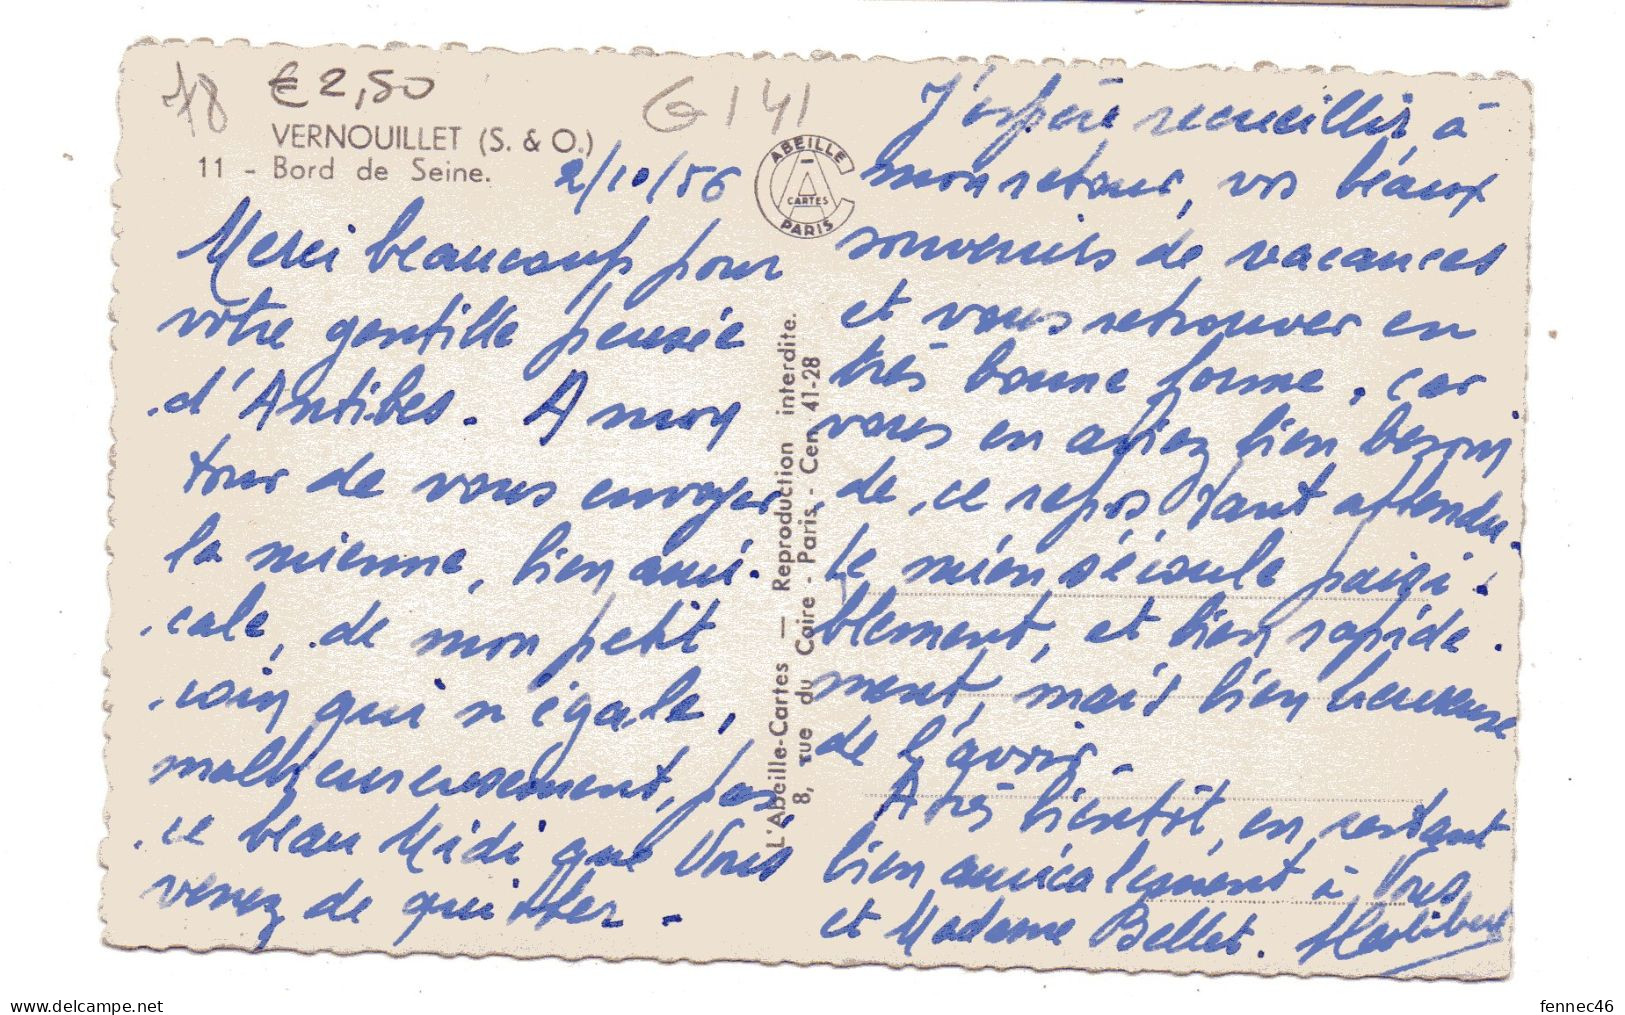 78
€ 2,50
G 141
VERNOUILLET (S. & O.)
11 - Bord de Seine.
2/10/56
ABEILLE
CARTES
PARIS
Merci beaucoup pour
votre gentille pensée
d'Antibes. A mon
tour de vous envoyer
la mienne, bien ami-
cale, de mon petit
coin qui n'égale,
malheureusement, pas
ce beau Midi que Vous
venez de quitter -
L'Abeille-Cartes — Reproduction interdite.
8, rue du Caire - Paris - Cen 41-28
J'espère recueillir, à
mon retour, vos beaux
souvenirs de vacances
et vous retrouver en
très bonne forme, car
vous en aviez bien besoin
de ce repos tant attendu.
Le mien s'écoule paisi-
blement, et bien rapide-
ment, mais bien heureuse
de l'avoir -
A très bientôt, en restant
bien amicalement à Vous
et Madame Bellet.
www.delcampe.net
fennec46